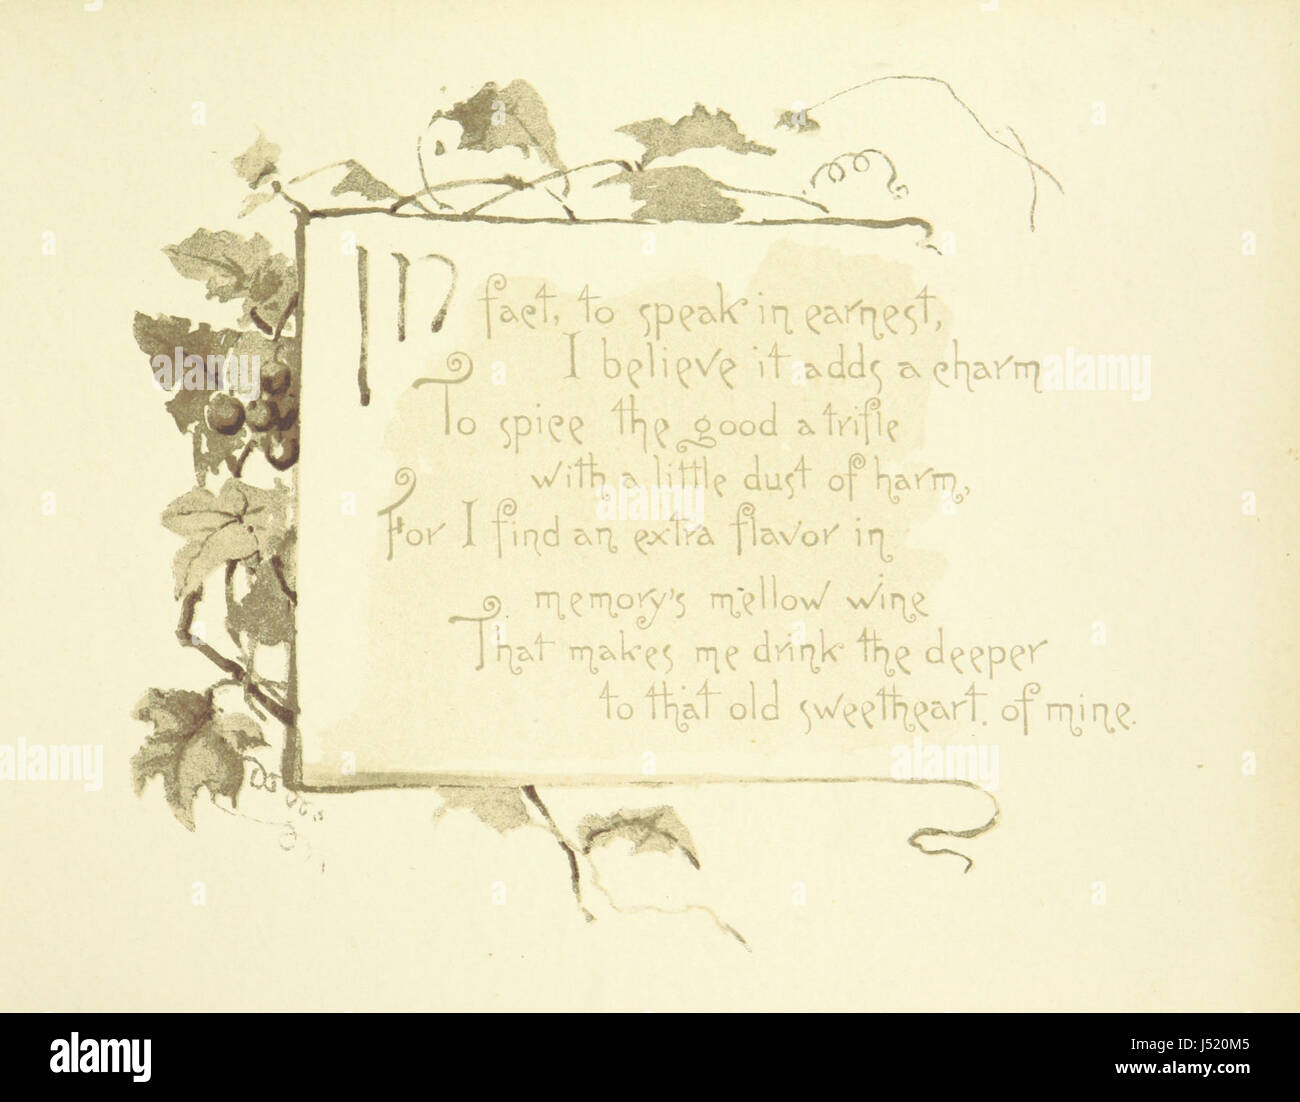 In fact, to speak in earnest,
I believe it adds a charm
To spice the good a trifle
with a little dust of harm,
For I find an extra flavor in
memory's mellow wine
That makes me drink the deeper
to that old sweetheart. of mine.
alamy
a
alamy
Image ID: J520M5
www.alamy.com